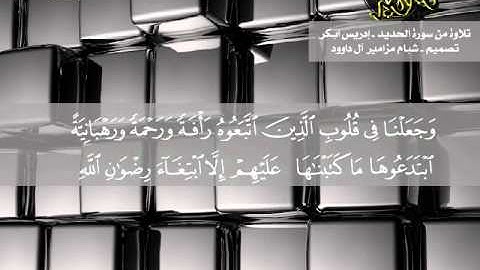 تلاوة من سورة الحديد ـ إدريس ابكر
تصميم ـ شبام مزامير آل داوود
وَجَعَلْنَا فِي قُلُوبِ الَّذِينَ اتَّبَعُوهُ رَأْفَةً وَرَحْمَةً وَرَهْبَانِيَّةً
ابْتَدَعُوهَا مَا كَتَبْنَاهَا عَلَيْهِمْ إِلَّا ابْتِغَاءَ رِضْوَانِ اللَّهِ